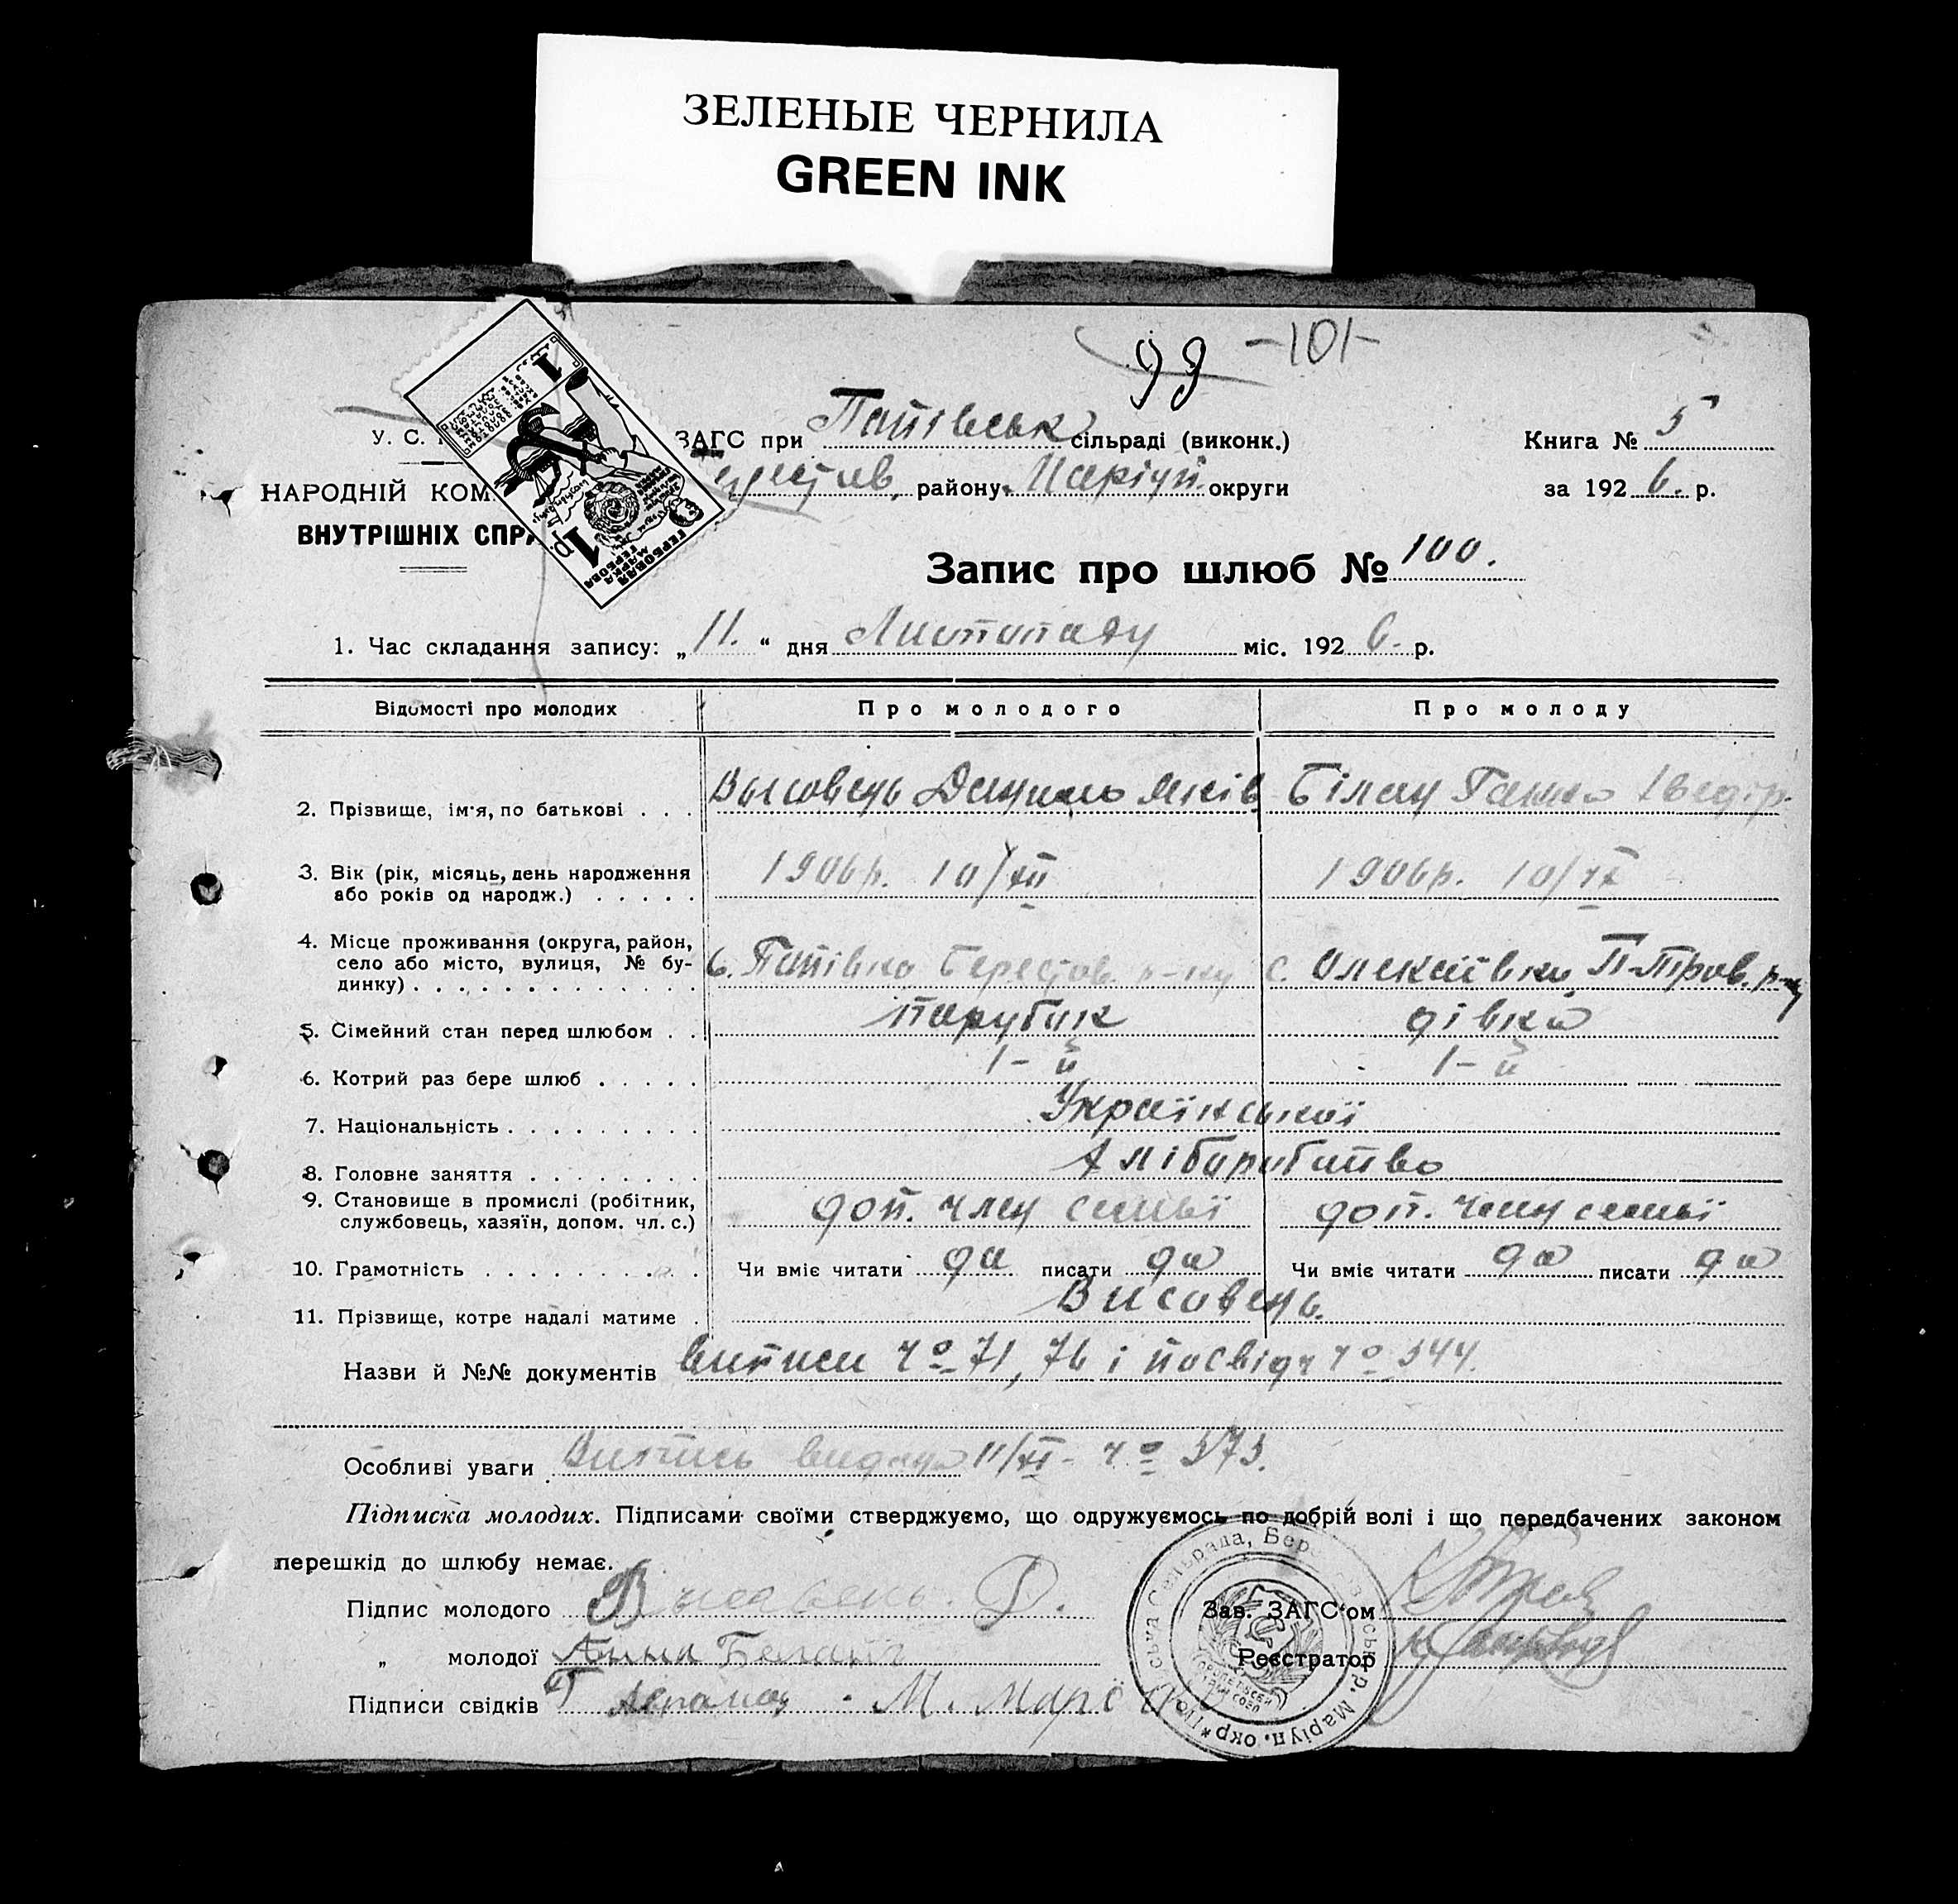 ЗЕЛЕНЫЕ ЧЕРНИЛА
GREEN INK
99 -101-
У. С.
НАРОДНІЙ КОМ
ВНУТРІШНІХ СПРА
1
ГЕРБОВАЯ
МАРКА
ГЕРБОВА
1 р.
ЗАГС при Попівськ сільраді (виконк.)
Берестов. району Маріуп. округи
Книга № 5
за 1926. р.
Запис про шлюб № 100.
1. Час складання запису: „11.“ дня Листопаду міс. 1926. р.
Відомості про молодих
Про молодого
Про молоду
2. Прізвище, ім'я, по батькові . . .
Высовень Данило Яків
Білан Ганна Хведір.
3. Вік (рік, місяць, день народження
або років од народж.) . . . . .
1906р. 10/XII
1906р. 10/IX
4. Місце проживання (округа, район,
село або місто, вулиця, № бу-
динку) . . . . . . . . . . . . .
с. Попівка Берестов. р-ну
с. Олексіївка, П-Пров. р-ну
5. Сімейний стан перед шлюбом . .
парубок
дівка
6. Котрий раз бере шлюб . . . . .
1-й
1-й
7. Національність . . . . . . . . .
Української
8. Головне заняття . . . . . . . .
Хліборобство
9. Становище в промислі (робітник,
службовець, хазяїн, допом. чл. с.)
доп. член семьї
доп. член семьї
10. Грамотність . . . . . . . . . .
Чи вміє читати да писати да
Чи вміє читати да писати да
11. Прізвище, котре надалі матиме .
Висовень.
Назви й №№ документів виписи чо 71, 76 і посвідч чо 344.
Особливі уваги Випись видана 11/XI - чо 373.
Підписка молодих. Підписами своїми стверджуємо, що одружуємось по добрій волі і що передбачених законом
перешкід до шлюбу немає.
Підпис молодого Высовень. Д.
„ молодої Анна Белан
Підписи свідків М.
Зав. ЗАГС'ом
Реєстратор
Сельрада, Бере
р. Маріуп. окр*